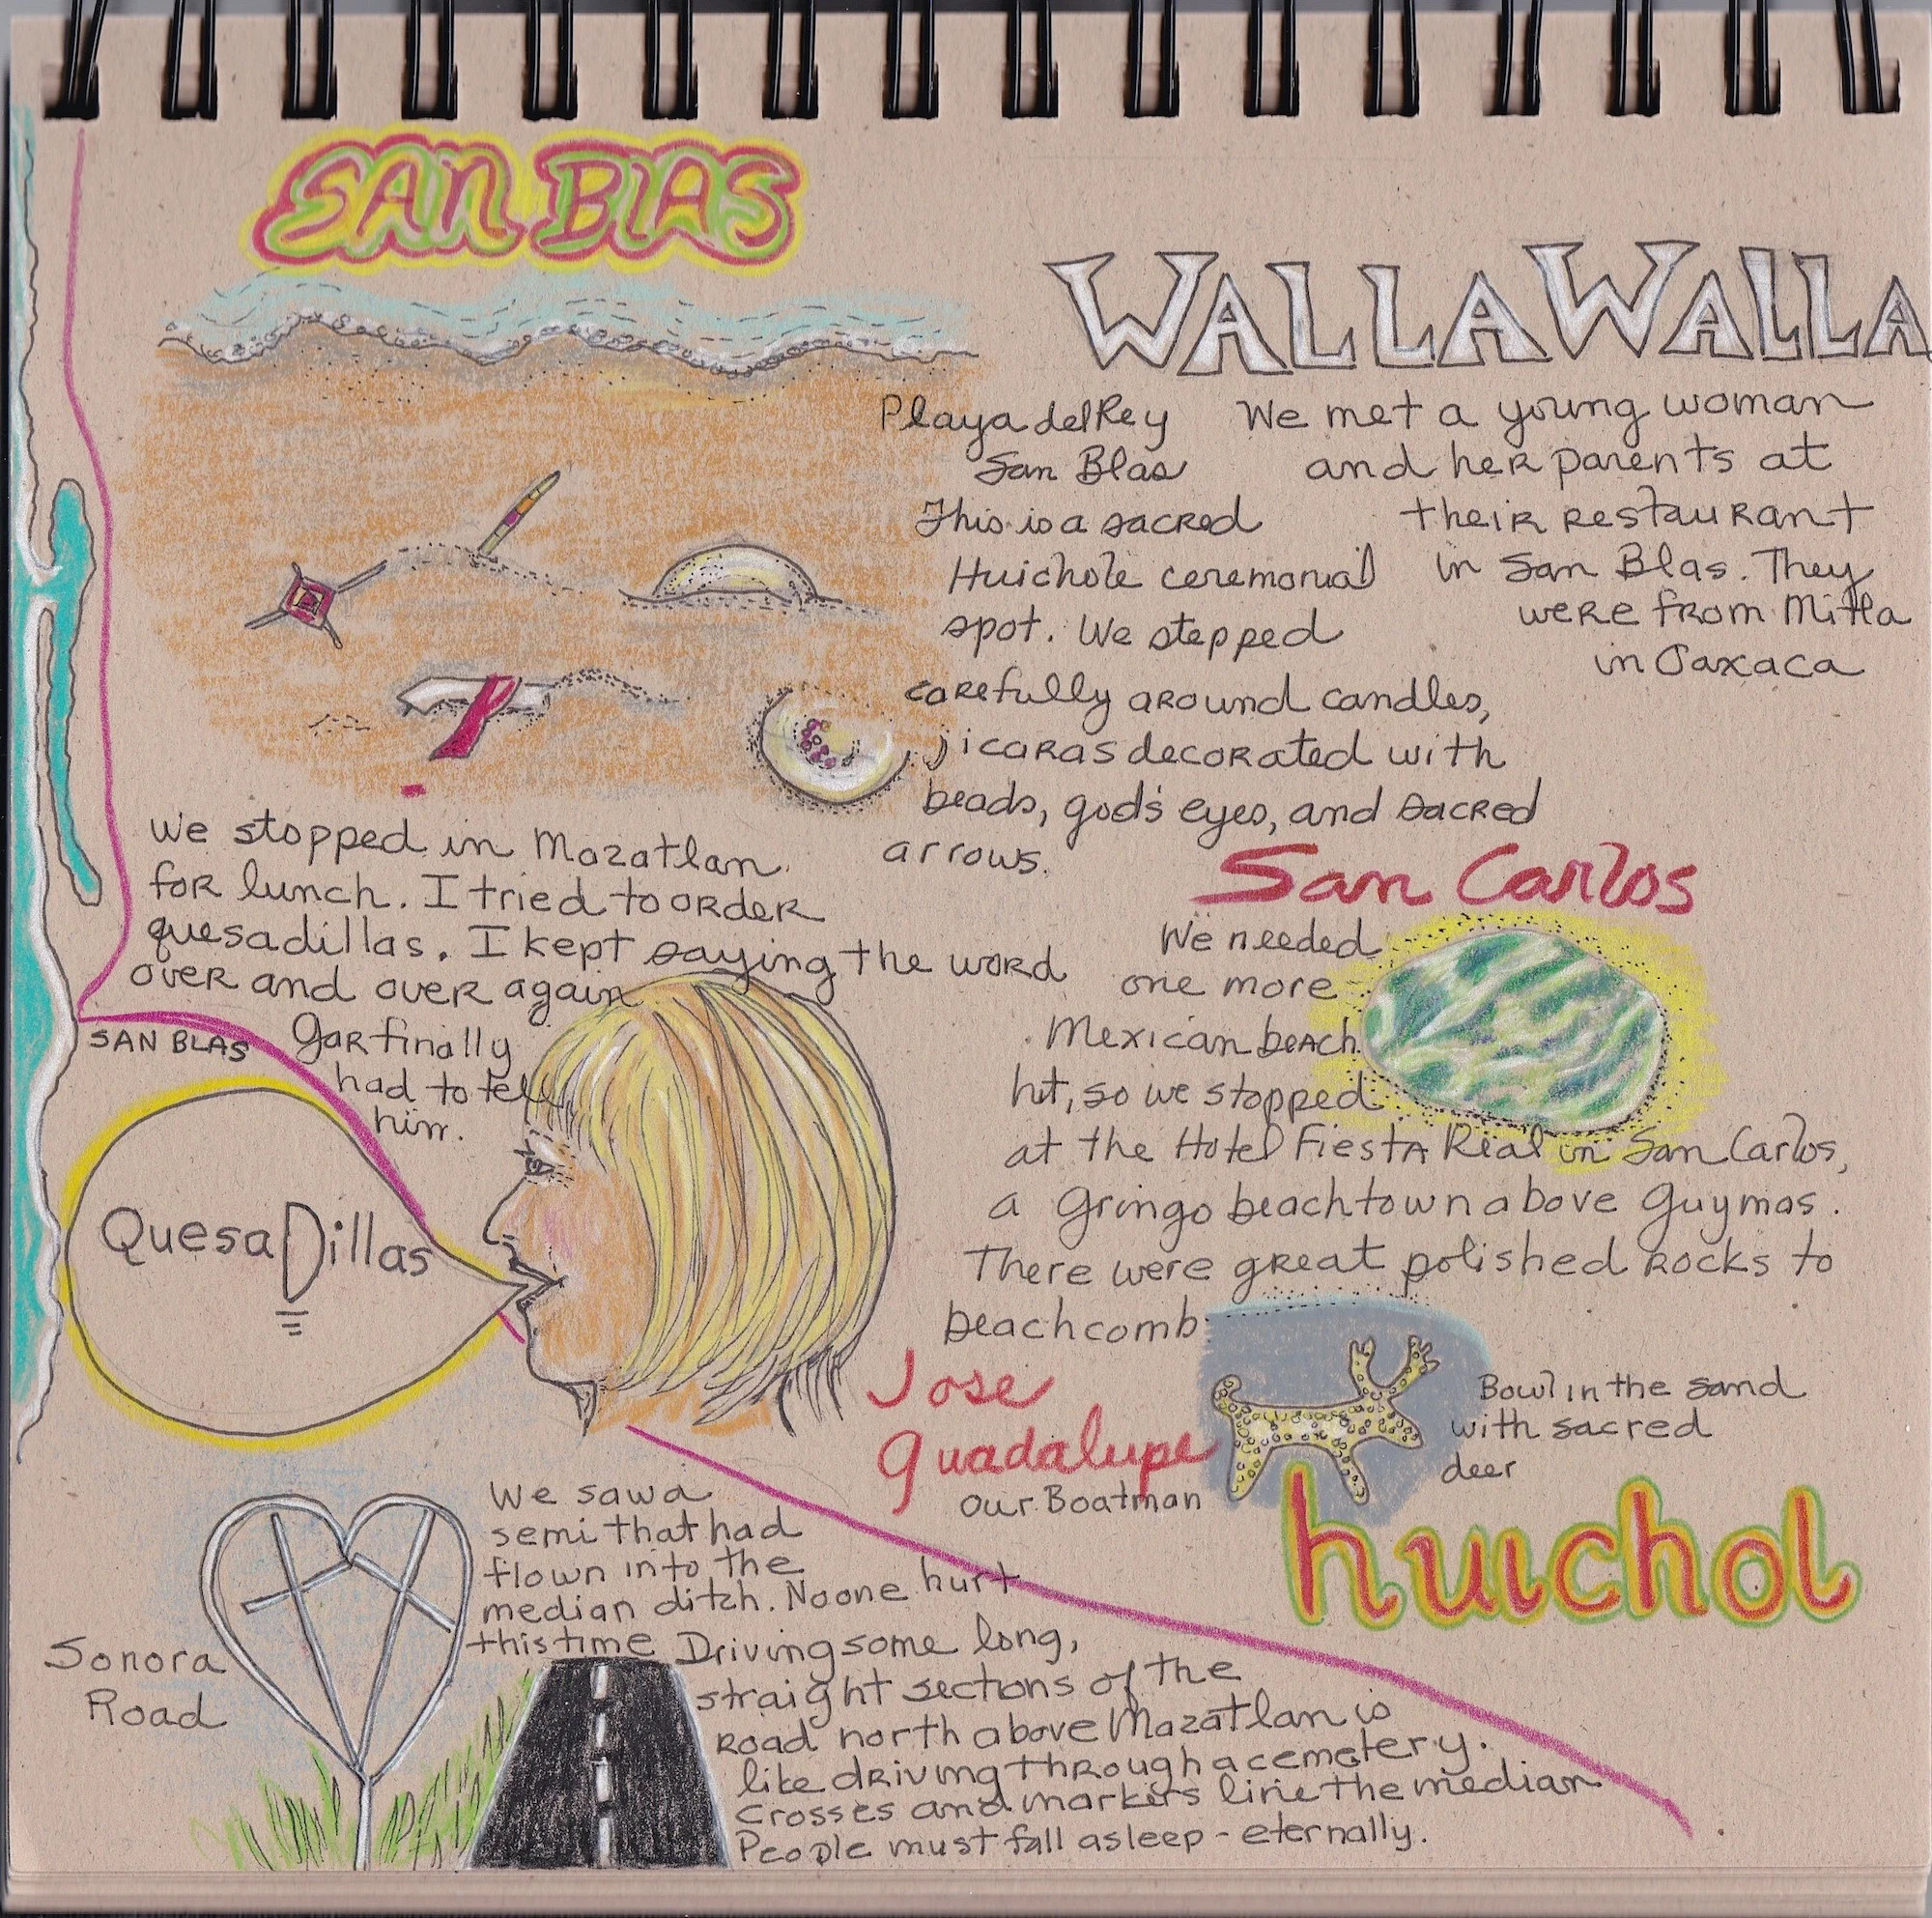 SAN BLAS
WALLA WALLA
Playa del Rey
San Blas
This is a sacred
Huichole ceremonial
spot. We stepped
carefully around candles,
jicaras decorated with
beads, god's eyes, and sacred
arrows.
We met a young woman
and her parents at
their restaurant
in San Blas. They
were from Mitla
in Oaxaca
We stopped in Mazatlan
for lunch. I tried to order
quesadillas. I kept saying the word
over and over again
Gar finally
had to tell
him.
SAN BLAS
QuesaDillas
San Carlos
We needed
one more
Mexican beach
hit, so we stopped
at the Hotel Fiesta Real in San Carlos,
a Gringo beachtown above Guymas.
There were great polished rocks to
beachcomb
Jose
Guadalupe
Our Boatman
Bowl in the sand
with sacred
deer
huichol
We saw a
semi that had
flown into the
median ditch. No one hurt
this time
Sonora
Road
Driving some long,
straight sections of the
road north above Mazatlan is
like driving through a cemetery.
Crosses and markers line the median
People must fall asleep - eternally.